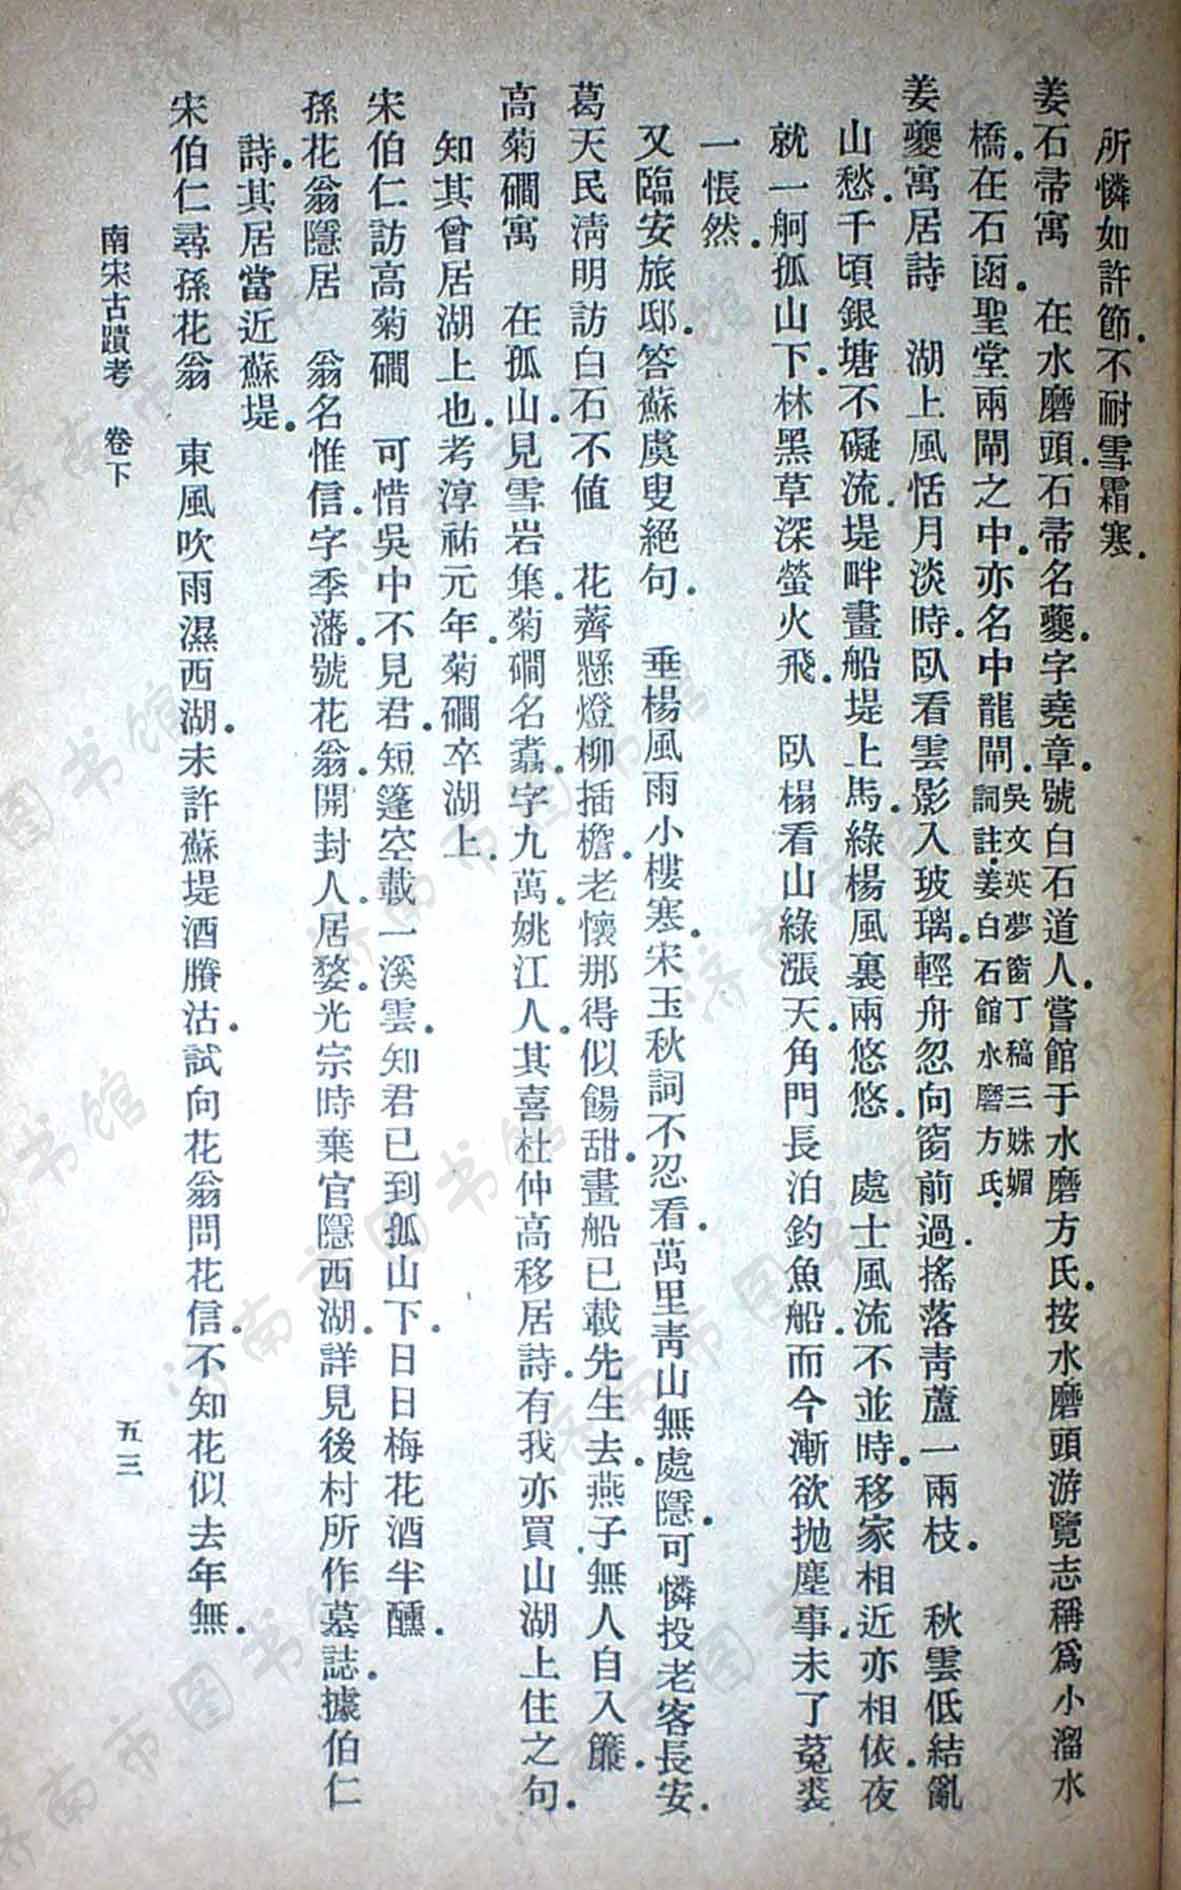 所憐如許節.不耐雪霜寒.
姜石帚寓　在水磨頭.石帚名夔.字堯章.號白石道人.嘗館于水磨方氏.按水磨頭游覽志稱爲小溜水
橋.在石函.聖堂兩閘之中.亦名中龍閘.吳文英夢窗丁稿三姝媚
詞註.姜白石館水磨方氏.
姜夔寓居詩　湖上風恬月淡時.臥看雲影入玻璃.輕舟忽向窗前過.搖落靑蘆一兩枝.　秋雲低結亂
山愁.千頃銀塘不礙流.堤畔畫船堤上馬.綠楊風裏兩悠悠.　處士風流不並時.移家相近亦相依.夜
就一舸孤山下.林黑草深螢火飛.　臥榻看山綠漲天.角門長泊釣魚船.而今漸欲抛塵事.未了菟裘
一悵然.
又臨安旅邸.答蘇虞叟絕句.　垂楊風雨小樓寒.宋玉秋詞不忍看.萬里靑山無處隱.可憐投老客長安.
葛天民淸明訪白石不值　花薺懸燈柳插檐.老懷那得似餳甜.畫船已載先生去.燕子無人自入簾.
高菊磵寓　在孤山.見雪岩集.菊磵名翥.字九萬.姚江人.其喜杜仲高移居詩.有我亦買山湖上住之句.
知其曾居湖上也.考淳祐元年.菊磵卒湖上.
宋伯仁訪高菊磵　可惜吳中不見君.短篷空載一溪雲.知君已到孤山下.日日梅花酒半醺.
孫花翁隱居　翁名惟信.字季藩.號花翁.開封人.居婺.光宗時棄官隱西湖.詳見後村所作墓誌.據伯仁
詩.其居當近蘇堤.
宋伯仁尋孫花翁　東風吹雨濕西湖.未許蘇堤酒賸沽.試向花翁問花信.不知花似去年無.
南宋古蹟考　卷下　五三
济南市图书馆